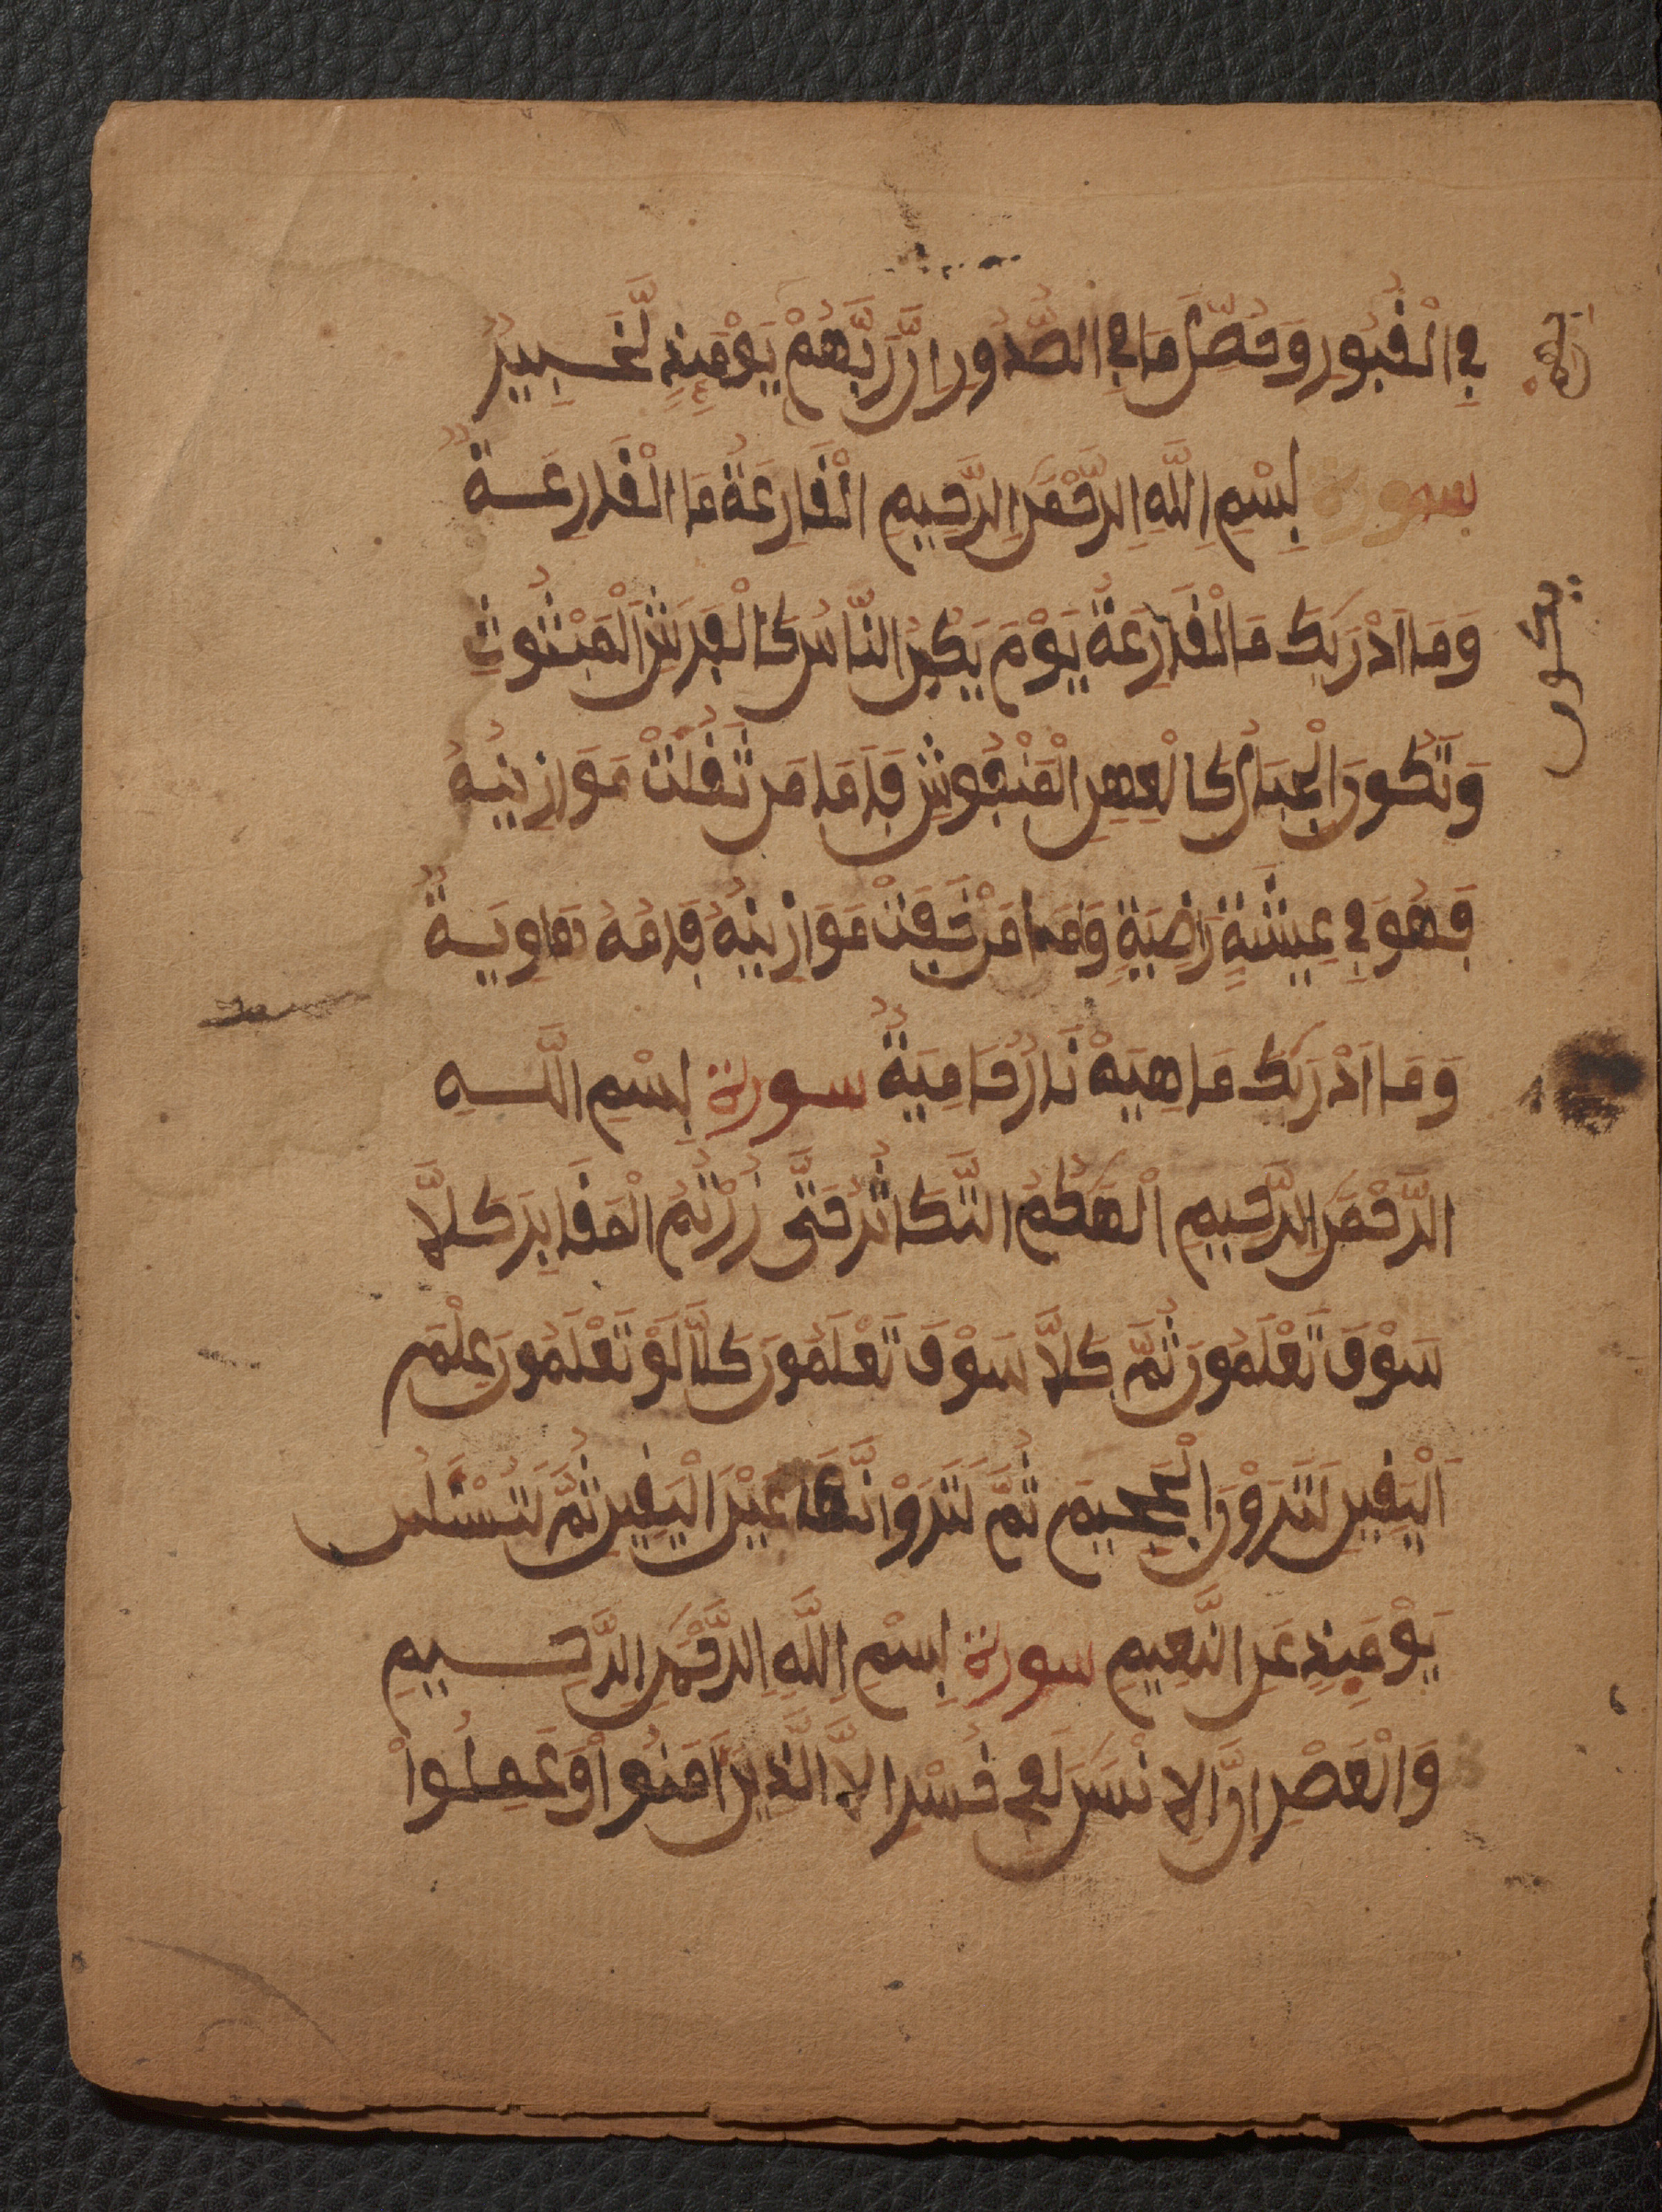 فِي الْقُبُورِ وَحُصِّلَ مَا فِي الصُّدُورِ إِنَّ رَبَّهُمْ يَوْمَئِذٍ لَّخَبِيرٌ
سورة بِسْمِ اللَّهِ الرَّحْمَٰنِ الرَّحِيمِ الْقَارِعَةُ مَا الْقَارِعَةُ
وَمَا أَدْرَيٰكَ مَا الْقَارِعَةُ يَوْمَ يَكُنُ النَّاسُ كَالْفَرَشِ الْمَبْثُوثِ
يكون
وَتَكُونُ الْجِبَالُ كَالْعِهْنِ الْمَنْفُوشِ فَأَمَّا مَن ثَقُلَتْ مَوَازِينُهُ
فَهُوَ فِي عِيشَةٍ رَّاضِيَةٍ وَأَمَّا مَنْ خَفَّتْ مَوَازِينُهُ فَأُمُّهُ هَاوِيَةٌ
وَمَا أَدْرَيٰكَ مَا هِيَهْ نَارٌ حَامِيَةٌ سورة بِسْمِ اللَّهِ
الرَّحْمَٰنِ الرَّحِيمِ أَلْهَيٰكُمُ التَّكَاثُرُ حَتَّى زُرْتُمُ الْمَقَابِرَ كَلَّا
سَوْفَ تَعْلَمُونَ ثُمَّ كَلَّا سَوْفَ تَعْلَمُونَ كَلَّا لَوْ تَعْلَمُونَ عِلْمَ
الْيَقِينِ لَتَرَوُنَّ الْجَحِيمَ ثُمَّ لَتَرَوُنَّهَا عَيْنَ الْيَقِينِ ثُمَّ لَتُسْئَلُنَّ
يَوْمَئِذٍ عَنِ النَّعِيمِ سورة بِسْمِ اللَّهِ الرَّحْمَٰنِ الرَّحِيمِ
وَالْعَصْرِ إِنَّ الْإِنْسَٰنَ لَفِي خُسْرٍ إِلَّا الَّذِينَ آمَنُواْ وَعَمِلُواْ